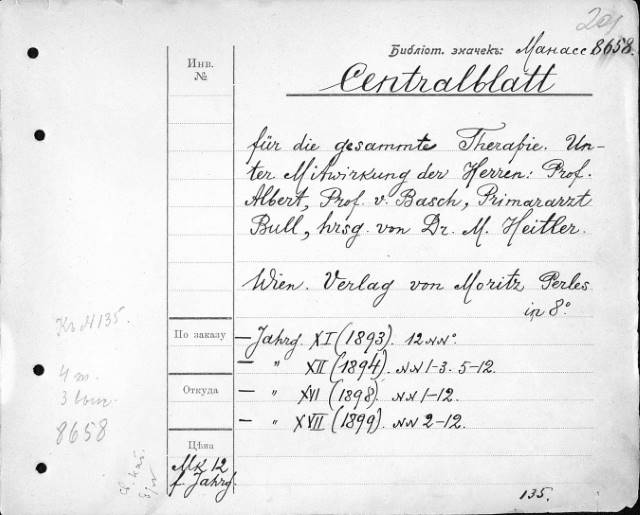 201
Библіот. значекъ: Манасс 8658.
Инв. №
Centralblatt
für die gesammte Therapie. Un-
ter Mitwirkung der Herren: Prof.
Albert, Prof. v. Basch, Primararzt
Bull, hrsg. von Dr. M. Heitler.
Wien. Verlag von Moritz Perles
in 8°.
По заказу
— Jahrg. XI (1893). 12 NN°.
— " XII (1894). NN 1-3. 5-12.
Откуда
— " XVI (1898). NN 1-12.
— " XVII (1899). NN 2-12.
Цѣна
Mk 12
f. Jahrg.
135.
Къ N 135.
4 т.
3 вып.
8658